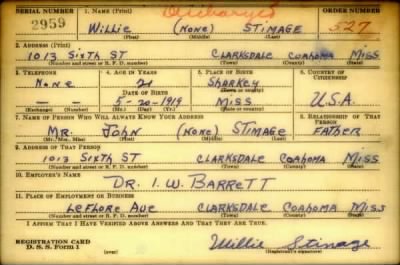 SERIAL NUMBER 1. NAME (Print) Discharged ORDER NUMBER
2959 Willie (NONE) STIMAGE 527
(First) (Middle) (Last)
2. ADDRESS (Print)
1013 Sixth ST CLARKSDALE COAHOMA MISS
(Number and street or R. F. D. number) (Town) (County) (State)
3. TELEPHONE 4. AGE IN YEARS 5. PLACE OF BIRTH 6. COUNTRY OF CITIZENSHIP
None 21 Sharkey
DATE OF BIRTH (Town or county)
5-20-1919 Miss U.S.A.
(Exchange) (Number) (Mo.) (Day) (Yr.) (State or country)
7. NAME OF PERSON WHO WILL ALWAYS KNOW YOUR ADDRESS 8. RELATIONSHIP OF THAT PERSON
MR. JOHN (NONE) STIMAGE FATHER
(Mr., Mrs., Miss) (First) (Middle) (Last)
9. ADDRESS OF THAT PERSON
1013 Sixth ST CLARKSDALE COAHOMA MISS
(Number and street or R. F. D. number) (Town) (County) (State)
10. EMPLOYER'S NAME
DR. I. W. BARRETT
11. PLACE OF EMPLOYMENT OR BUSINESS
LEFLORE AVE CLARKSDALE COAHOMA MISS
(Number and street or R. F. D. number) (Town) (County) (State)
I AFFIRM THAT I HAVE VERIFIED ABOVE ANSWERS AND THAT THEY ARE TRUE.
REGISTRATION CARD
D. S. S. Form 1 (over) Willie Stimage